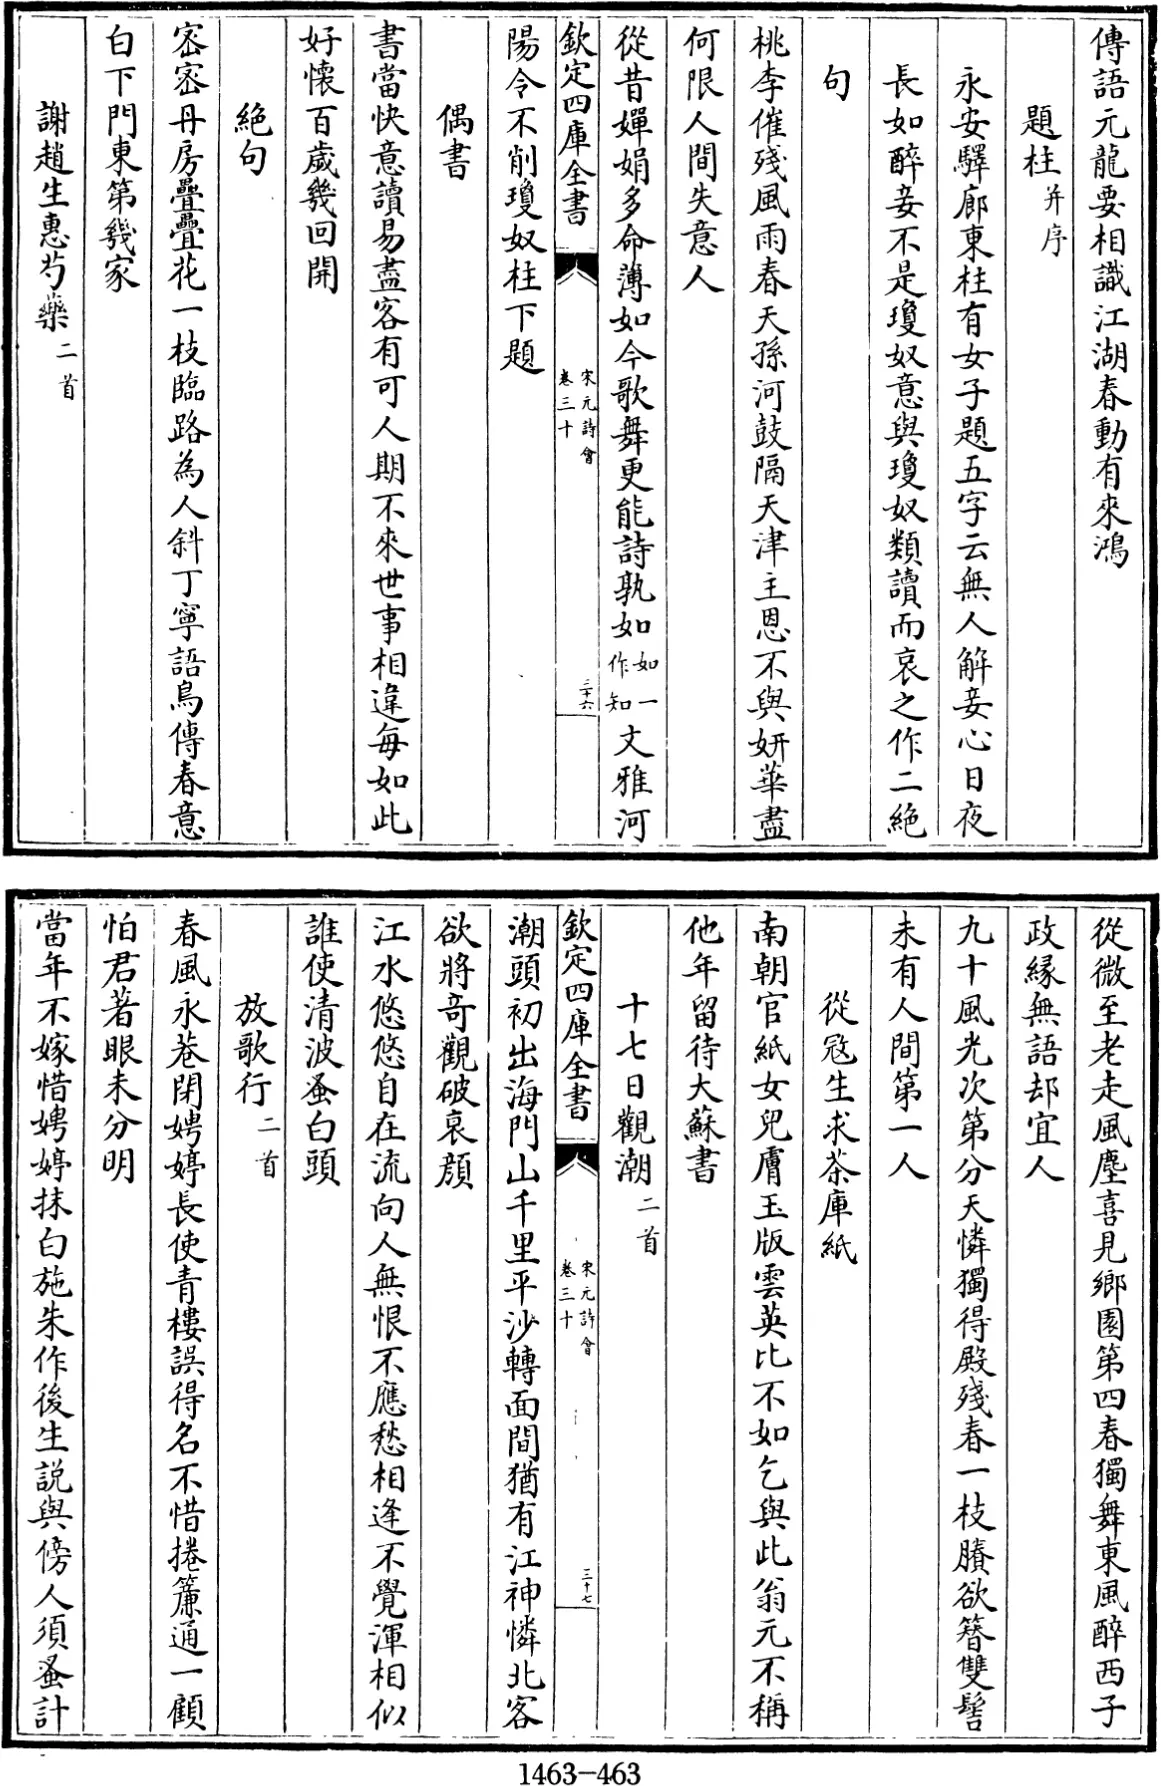 傳語元龍要相識江湖春動有來鴻
題柱并序
永安驛廊東柱有女子題五字云無人解妾心日夜
長如醉妾不是瓊奴意與瓊奴類讀而哀之作二絶
句
桃李催殘風雨春天孫河鼓隔天津主恩不與妍華盡
何限人間失意人
從昔嬋娟多命薄如今歌舞更能詩孰如如一作知文雅河
欽定四庫全書
宋元詩會
卷三十
三十六
陽令不削瓊奴柱下題
偶書
書當快意讀易盡客有可人期不來世事相違每如此
好懷百歲幾回開
絶句
密密丹房疊疊花一枝臨路為人斜丁寧語鳥傳春意
白下門東第幾家
謝趙生惠芍藥二首
從微至老走風塵喜見鄉園第四春獨舞東風醉西子
政緣無語却宜人
九十風光次第分天憐獨得殿殘春一枝賸欲簪雙髻
未有人間第一人
從寇生求茶庫紙
南朝官紙女兒膚玉版雲英比不如乞與此翁元不稱
他年留待大蘇書
十七日觀潮二首
欽定四庫全書
宋元詩會
卷三十
三十七
潮頭初出海門山千里平沙轉面間猶有江神憐北客
欲將奇觀破衰顏
江水悠悠自在流向人無恨不應愁相逢不覺渾相似
誰使清波蚤白頭
放歌行二首
春風永巷閉娉婷長使青樓誤得名不惜捲簾通一顧
怕君著眼未分明
當年不嫁惜娉婷抹白施朱作後生説與傍人須蚤計
1463-463